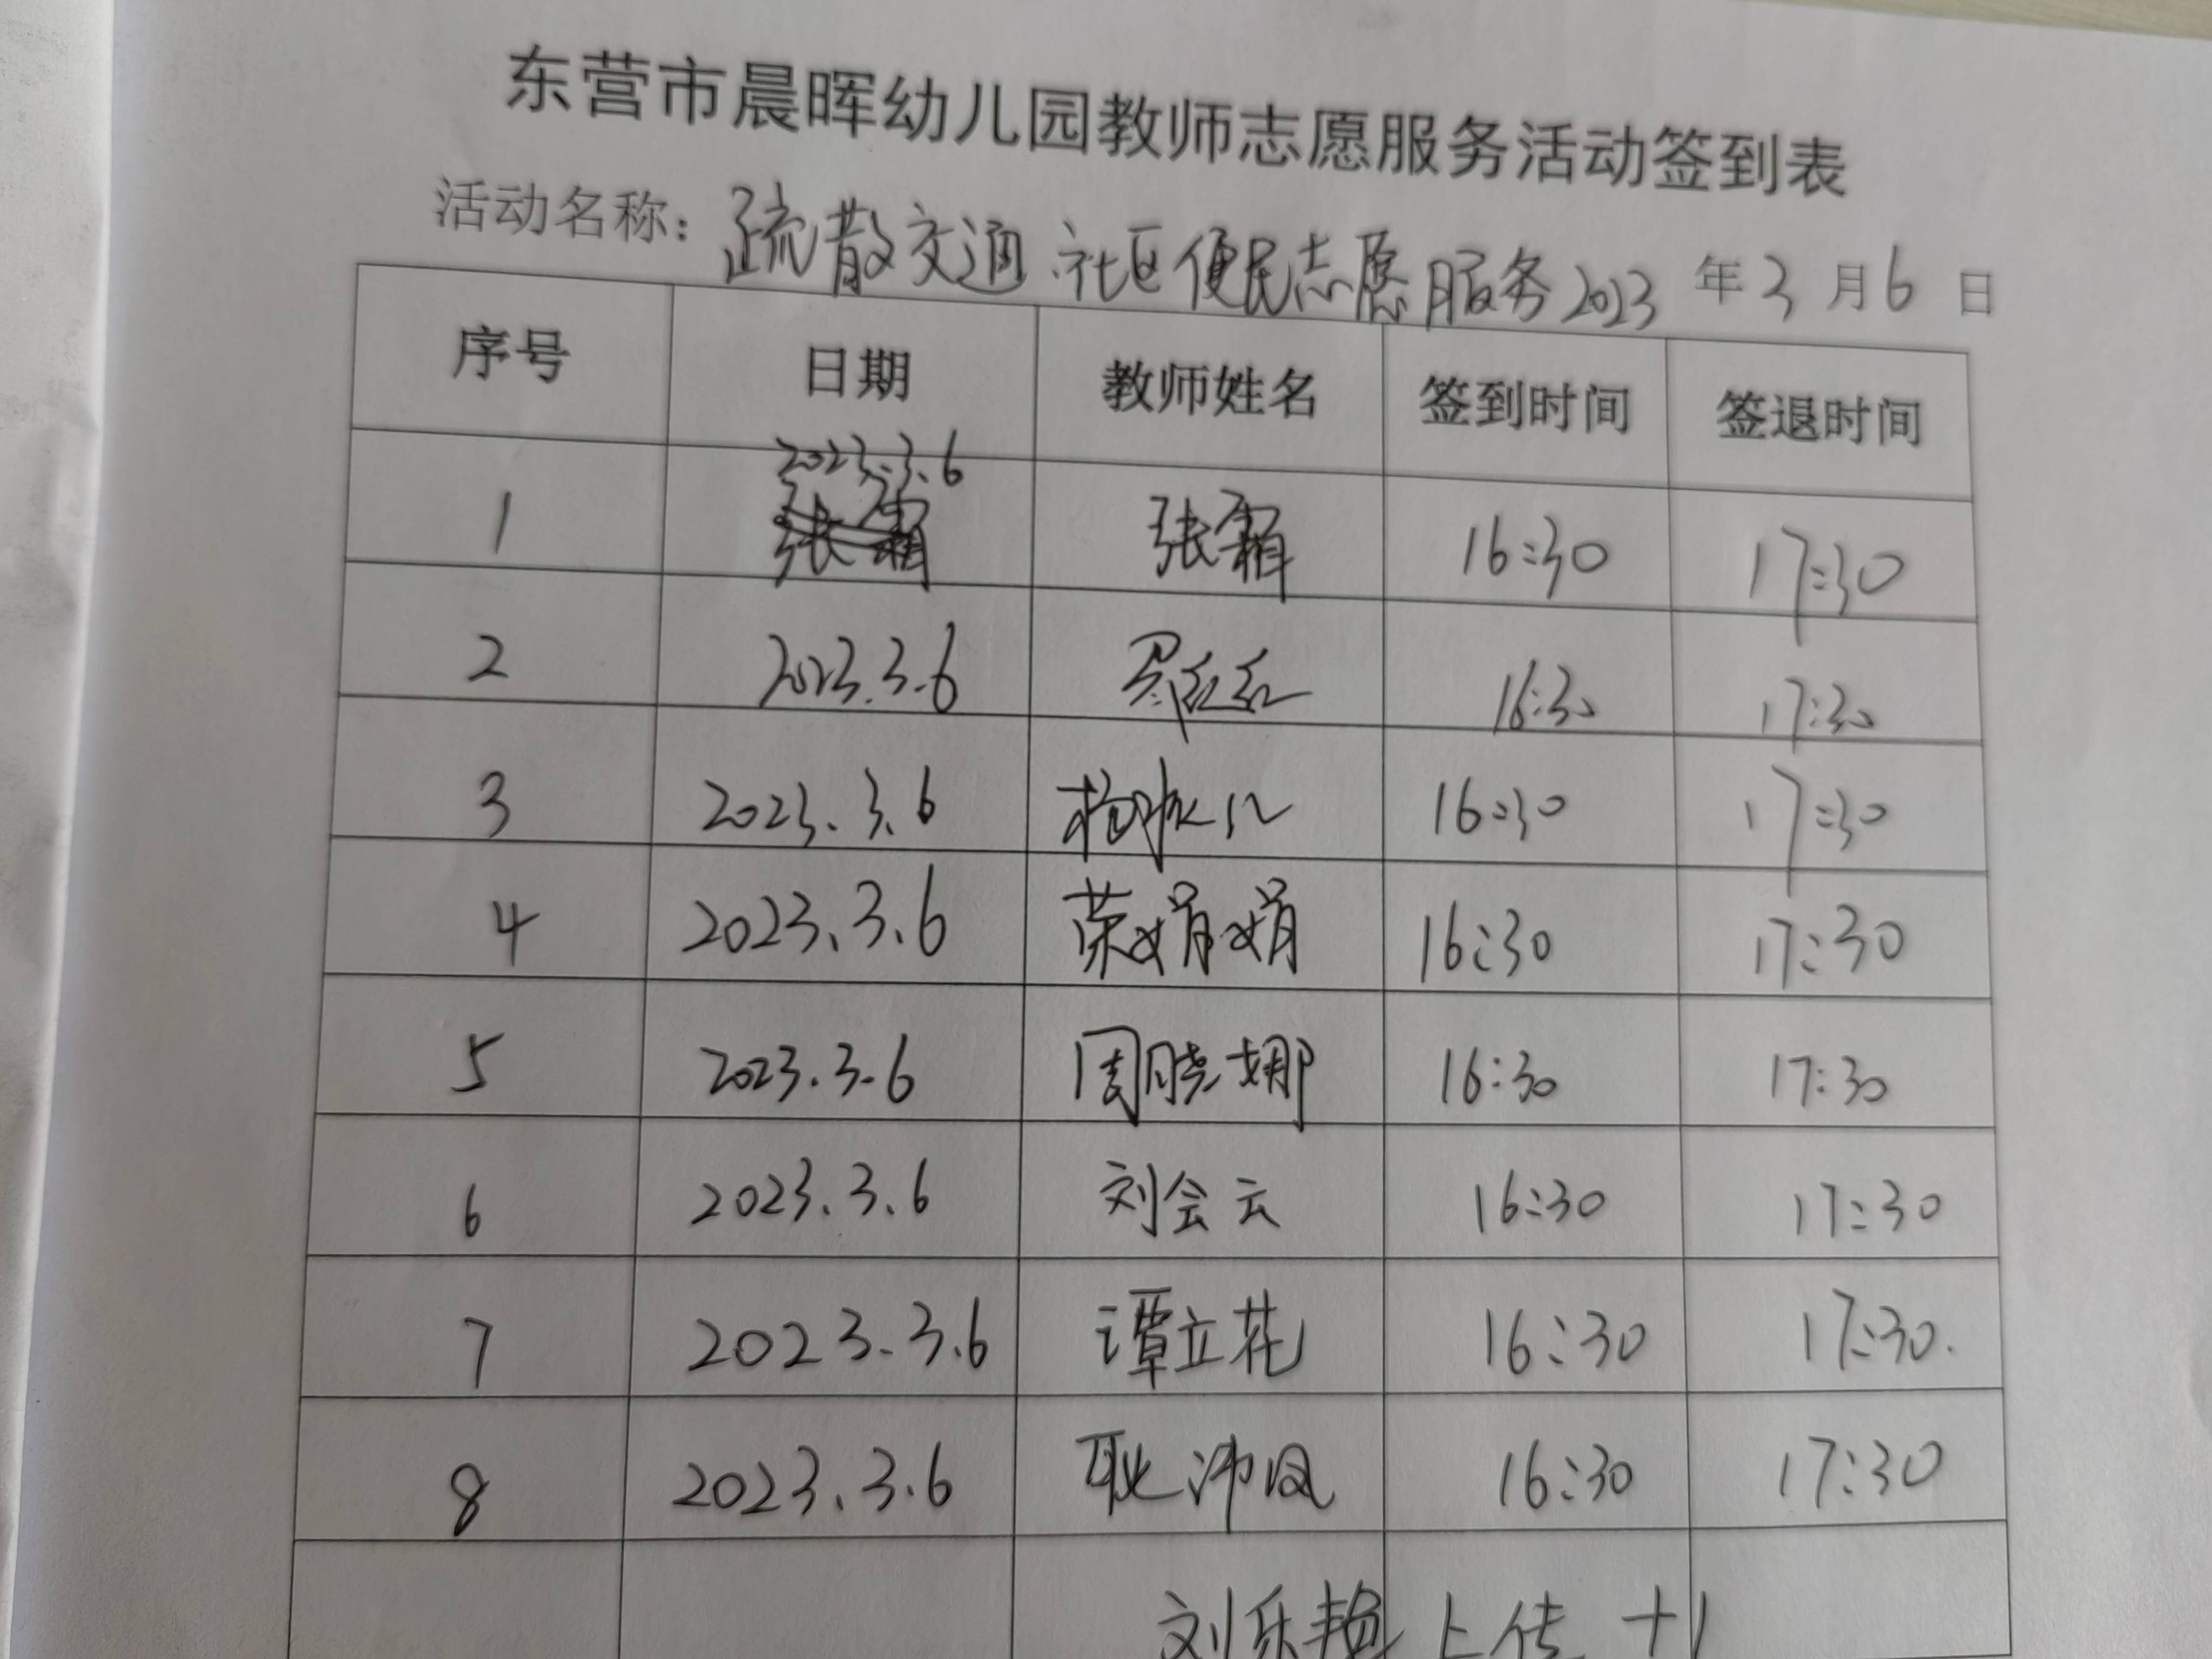 东营市晨晖幼儿园教师志愿服务活动签到表
活动名称：疏散交通 社区便民志愿服务 2023 年 3 月 6 日
序号 日期 教师姓名 签到时间 签退时间
2023.3.6
1 张霜 张霜 16:30 17:30
2 2023.3.6 红红 16:30 17:30
3 2023.3.6 杨 16:30 17:30
4 2023.3.6 荣娟娟 16:30 17:30
5 2023.3.6 周晓娜 16:30 17:30
6 2023.3.6 刘会云 16:30 17:30
7 2023.3.6 谭立花 16:30 17:30.
8 2023.3.6 耿沛凤 16:30 17:30
刘乐艳 上传 +1